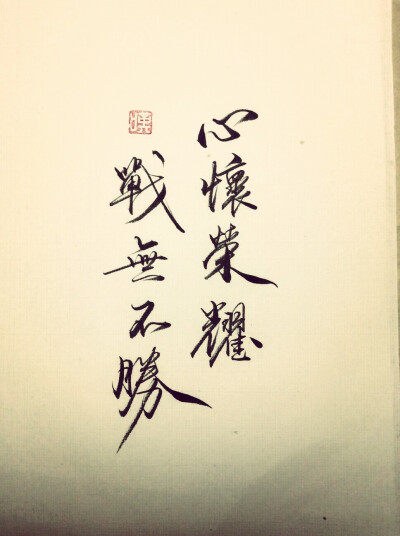 心懷榮耀
戰無不勝